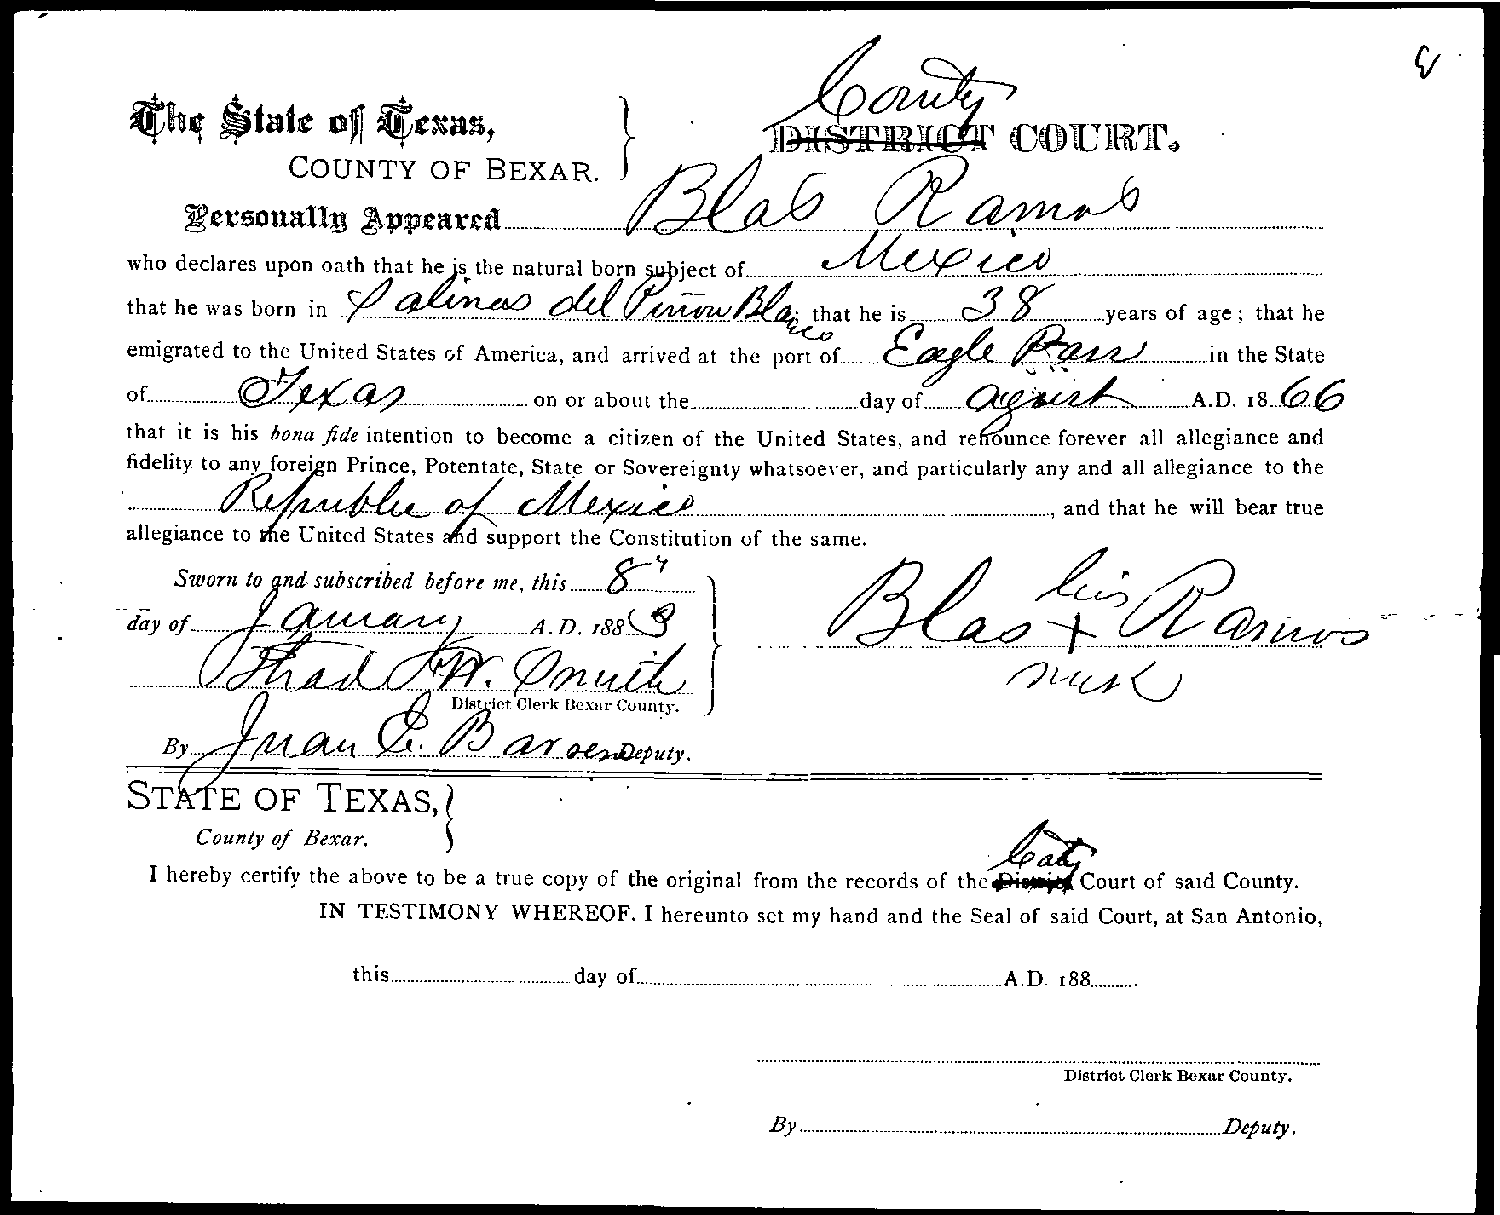 County
The State of Texas, DISTRICT COURT.
COUNTY OF BEXAR.
Personally Appeared Blas Ramos
who declares upon oath that he is the natural born subject of Mexico
that he was born in Salinas del Piñon Blanco that he is 38 years of age; that he
emigrated to the United States of America, and arrived at the port of Eagle Pass in the State
of Texas on or about the day of August A.D. 1866
that it is his bona fide intention to become a citizen of the United States, and renounce forever all allegiance and
fidelity to any foreign Prince, Potentate, State or Sovereignty whatsoever, and particularly any and all allegiance to the
Republic of Mexico, and that he will bear true
allegiance to the United States and support the Constitution of the same.
Sworn to and subscribed before me, this 8"
day of January A. D. 1883 Blas his + Ramos
mark
Thad W. Smith
District Clerk Bexar County.
By Juan E. Barrera Deputy.
STATE OF TEXAS,
County of Bexar.
I hereby certify the above to be a true copy of the original from the records of the District County Court of said County.
IN TESTIMONY WHEREOF. I hereunto set my hand and the Seal of said Court, at San Antonio,
this day of A.D. 188
District Clerk Bexar County.
By Deputy.